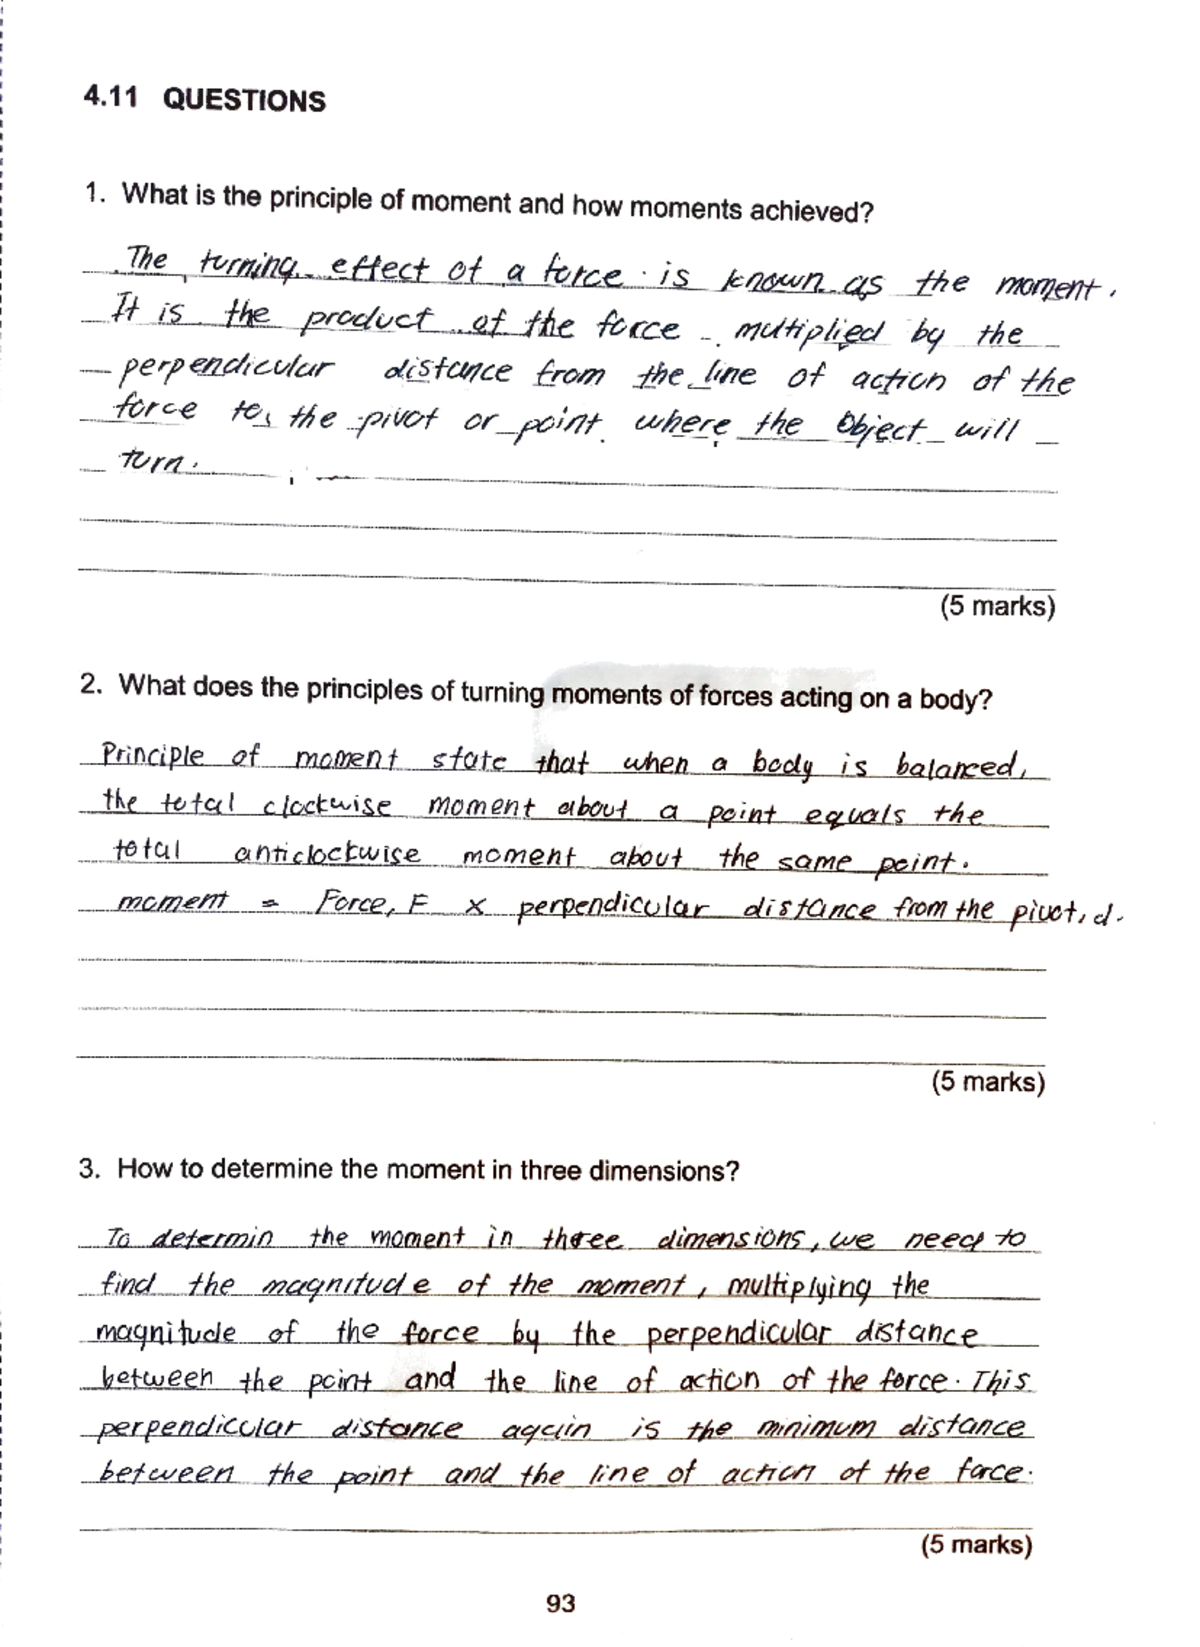 4.11 QUESTIONS
1. What is the principle of moment and how moments achieved?
The turning effect of a force is known as the moment.
It is the product of the force multiplied by the
perpendicular distance from the line of action of the
force to the pivot or point where the Object will
turn.
(5 marks)
2. What does the principles of turning moments of forces acting on a body?
Principle of moment state that when a body is balanced,
the total clockwise moment about a point equals the
total anticlockwise moment about the same point.
moment = Force, F x perpendicular distance from the pivot, d.
(5 marks)
3. How to determine the moment in three dimensions?
To determin the moment in three dimensions, we need to
find the magnitude of the moment, multiplying the
magnitude of the force by the perpendicular distance
between the point and the line of action of the force. This
perpendicular distance again is the minimum distance
between the point and the line of action of the force.
(5 marks)
93